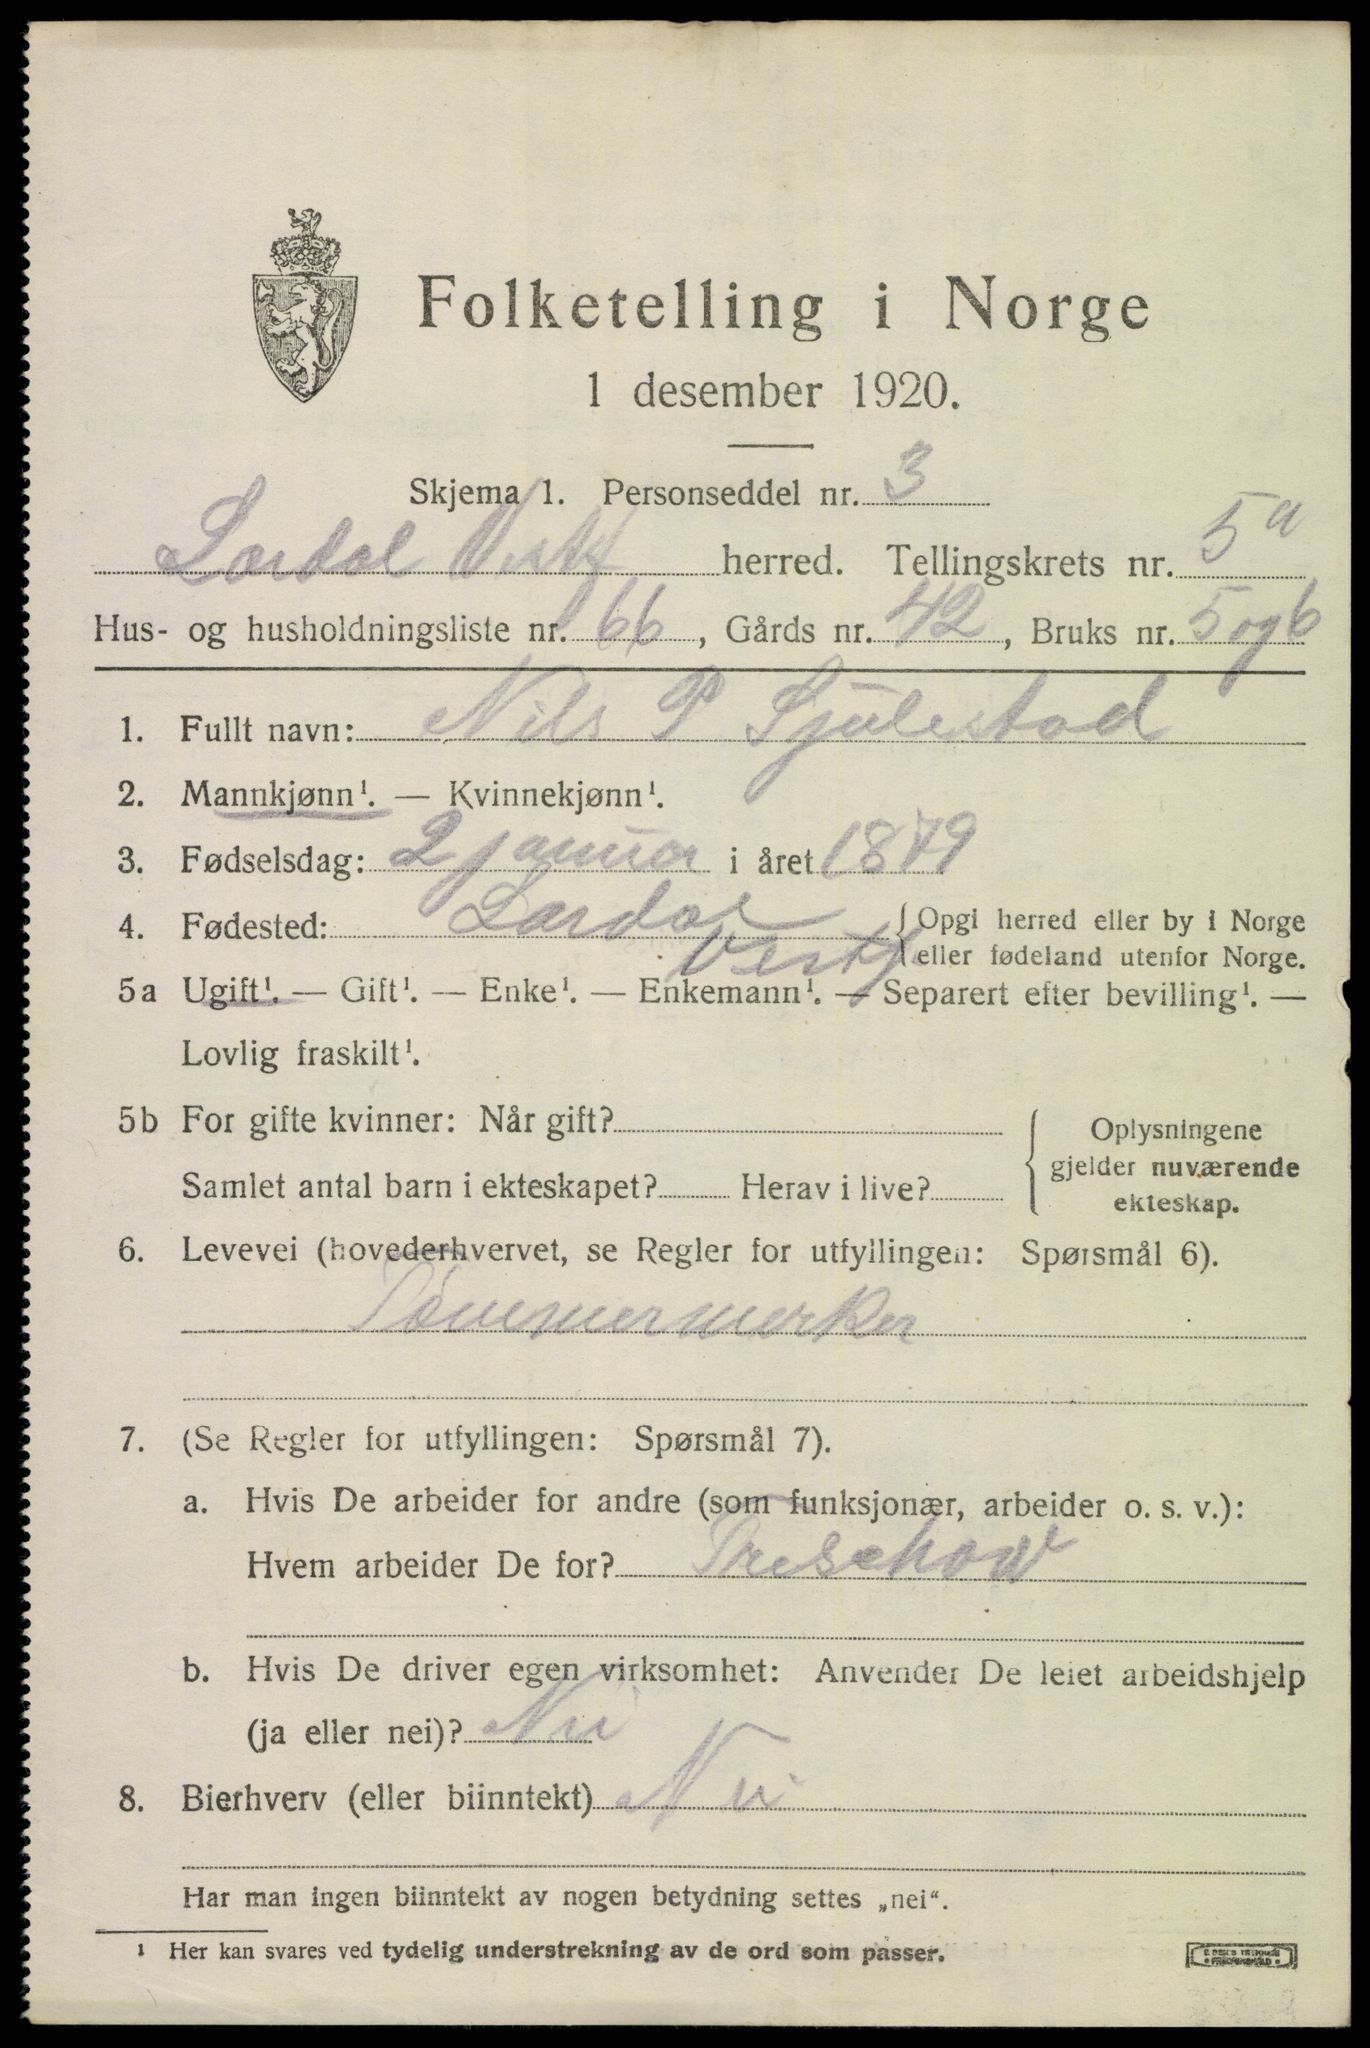 Folketelling i Norge
1 desember 1920.
Skjema 1. Personseddel nr. 3
Lardal Vestf herred. Tellingskrets nr. 5a
Hus- og husholdningsliste nr. 66, Gårds nr. 42, Bruks nr. 5 og 6
1. Fullt navn: Nils P Sjulestad
2. Mannkjønn¹. — Kvinnekjønn¹.
3. Fødselsdag: 2 januar i året 1879
4. Fødested: Lardal Vestf { Opgi herred eller by i Norge
eller fødeland utenfor Norge.
5a Ugift¹. — Gift¹. — Enke¹. — Enkemann¹. — Separert efter bevilling¹. —
Lovlig fraskilt¹.
5b For gifte kvinner: Når gift?
Samlet antal barn i ekteskapet? Herav i live?
{ Oplysningene
gjelder nuværende
ekteskap.
6. Levevei (hovederhvervet, se Regler for utfyllingen: Spørsmål 6).
Tømmermerker
7. (Se Regler for utfyllingen: Spørsmål 7).
a. Hvis De arbeider for andre (som funksjonær, arbeider o. s. v.):
Hvem arbeider De for? Treschow
b. Hvis De driver egen virksomhet: Anvender De leiet arbeidshjelp
(ja eller nei)? Nei
8. Bierhverv (eller biinntekt) Nei
Har man ingen biinntekt av nogen betydning settes „nei“.
¹ Her kan svares ved tydelig understrekning av de ord som passer.